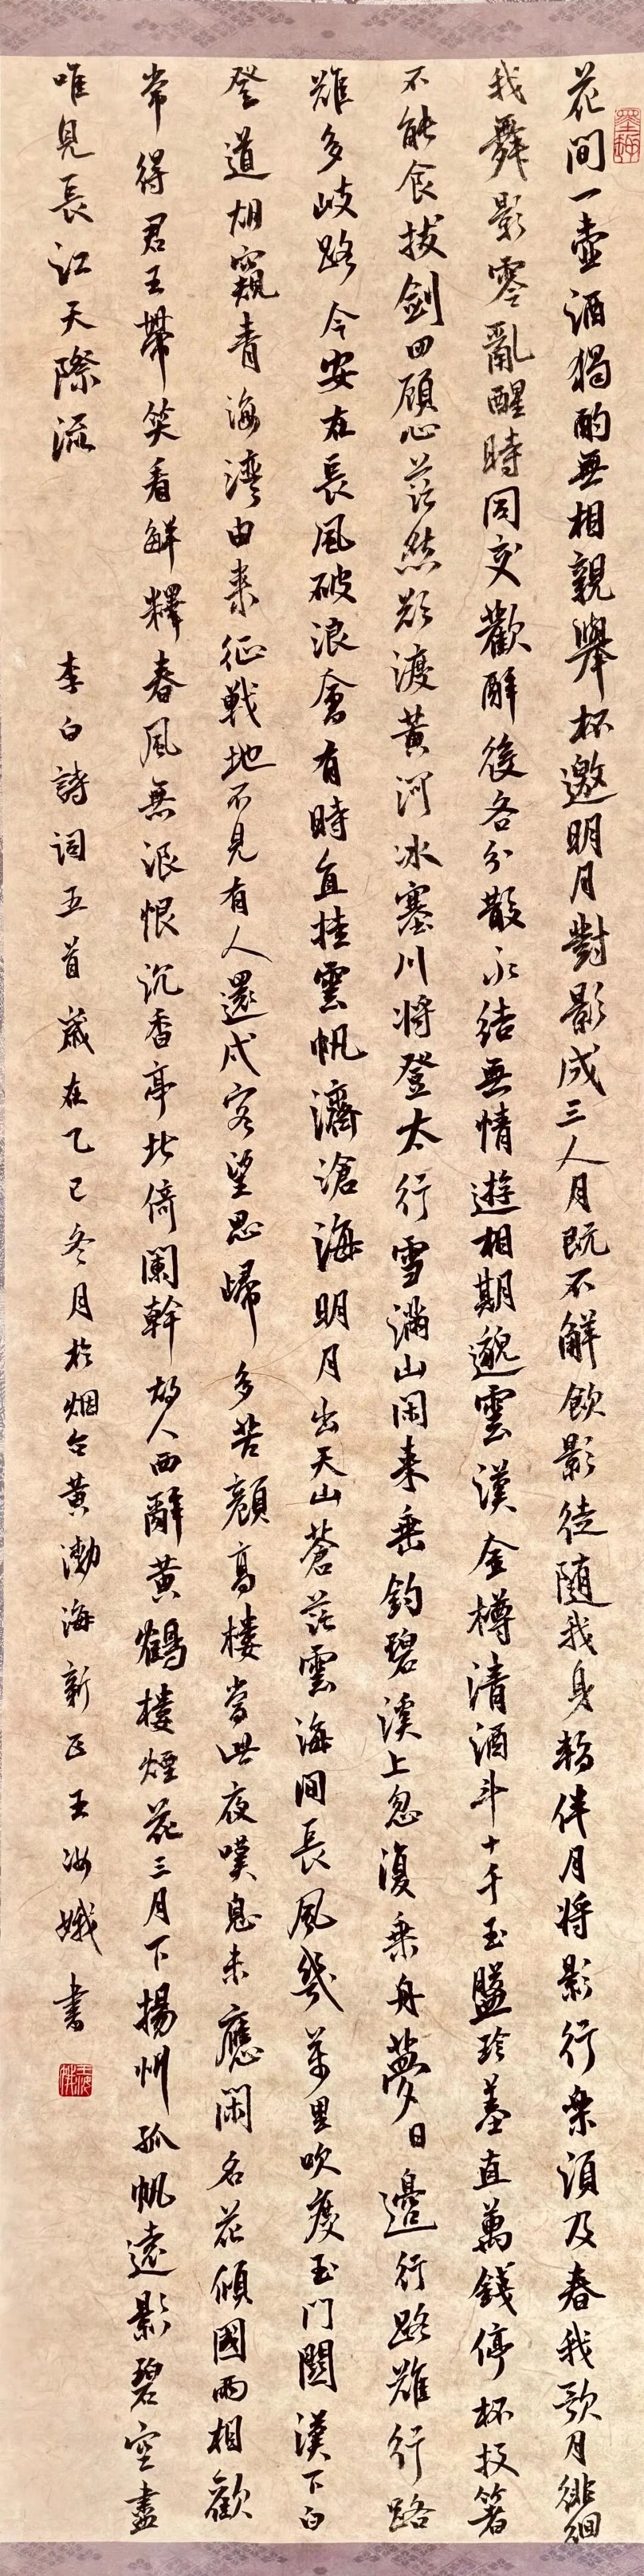 花間一壺酒獨酌無相親舉杯邀明月對影成三人月既不解飲影徒隨我身暫伴月將影行樂須及春我歌月徘徊
我舞影零亂醒時同交歡醉後各分散永結無情遊相期邈雲漢金樽清酒斗十千玉盤珍羞直萬錢停杯投箸
不能食拔劍四顧心茫然欲渡黃河冰塞川將登太行雪滿山閑來垂釣碧溪上忽復乘舟夢日邊行路難行路
難多歧路今安在長風破浪會有時直挂雲帆濟滄海明月出天山蒼茫雲海間長風幾萬里吹度玉門關漢下白
登道胡窺青海灣由來征戰地不見有人還戍客望思歸多苦顏高樓當此夜嘆息未應閑名花傾國兩相歡
常得君王帶笑看解釋春風無限恨沉香亭北倚闌幹故人西辭黃鶴樓煙花三月下揚州孤帆遠影碧空盡
唯見長江天際流
李白詩詞五首歲在乙巳冬月於烟台黃渤海新区王海娥書